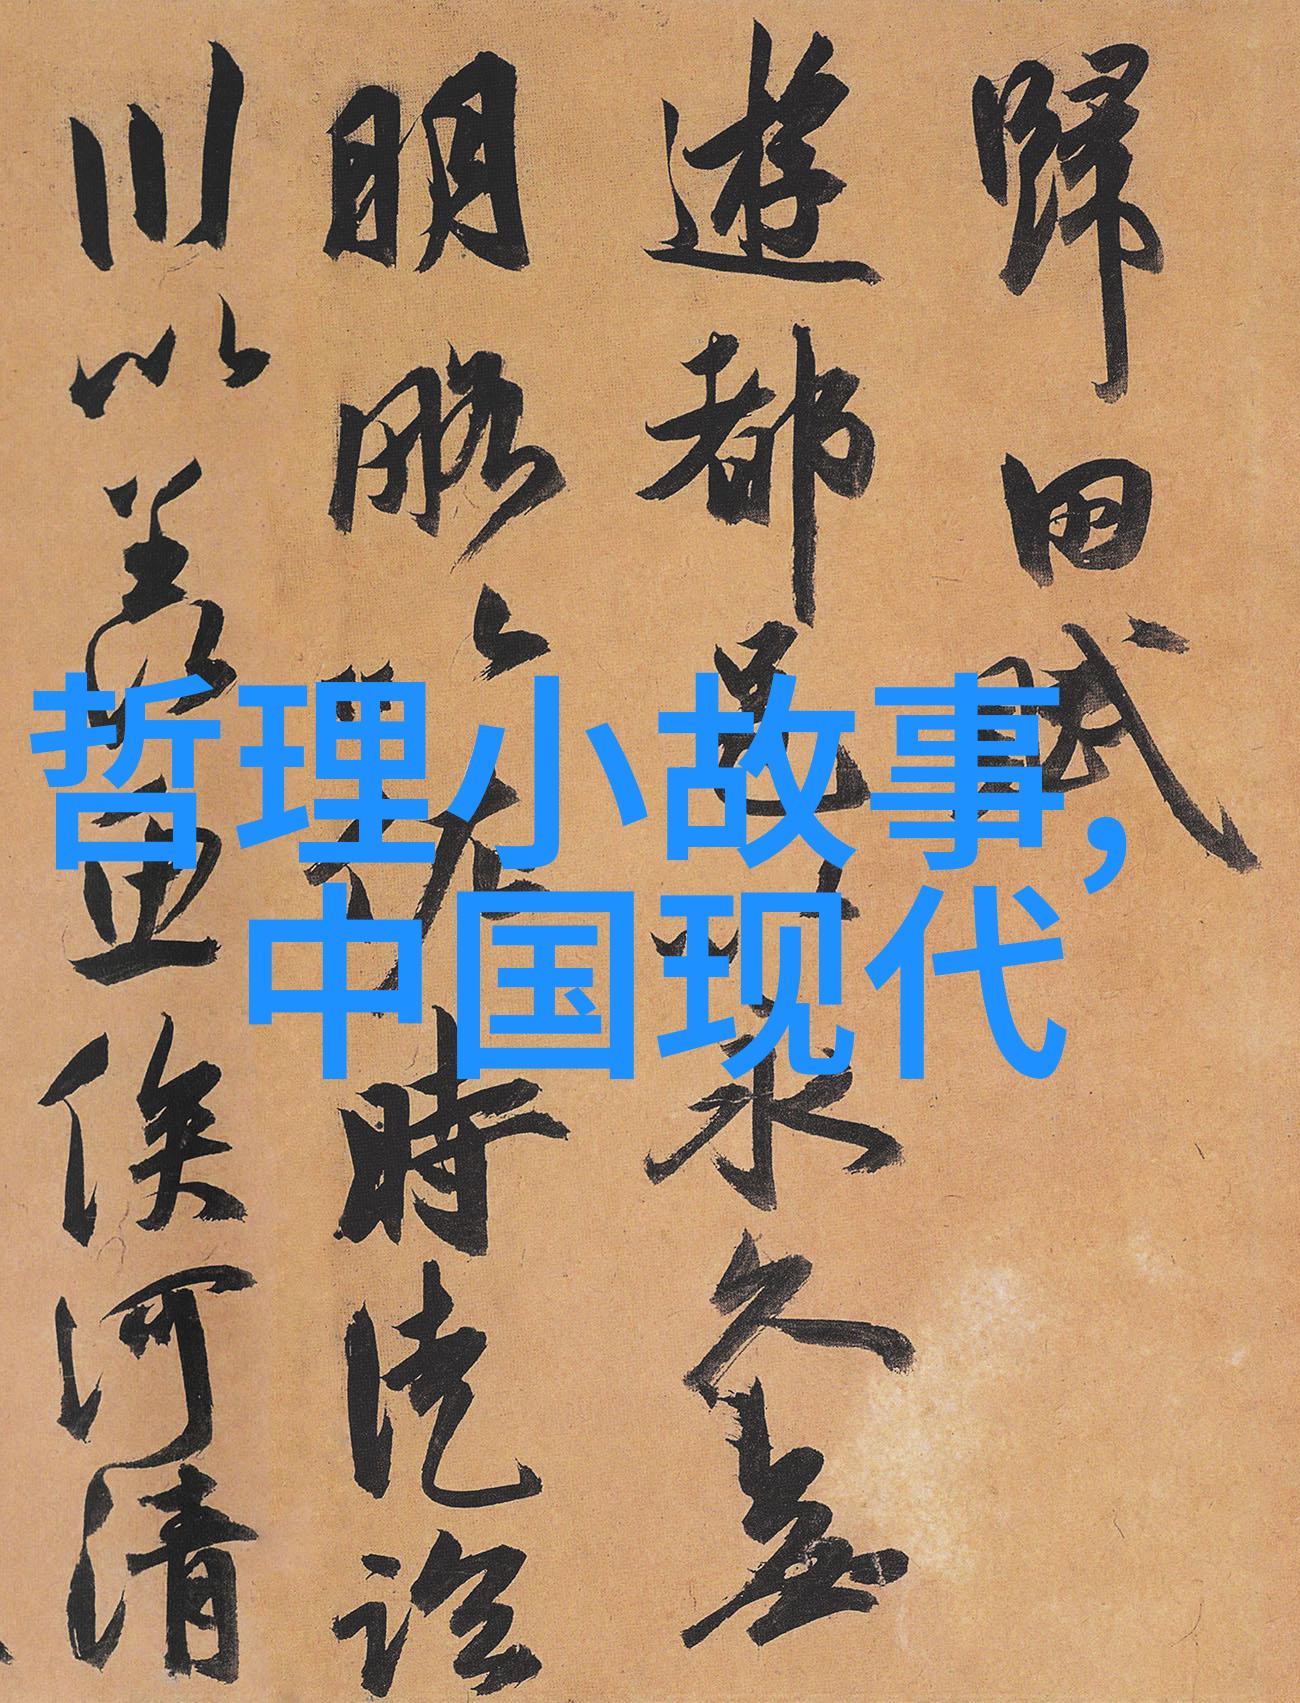 哲理小故事,
中国现代
歸田賦
遊都邑以永久無
明略以佐時徒臨
川以羨魚俟河清